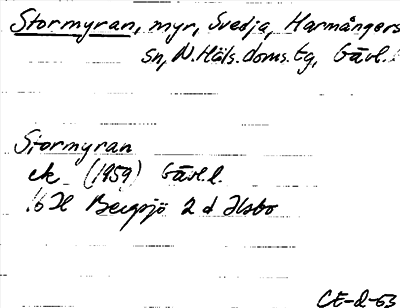 Stormyran, myr, Svedja, Harmångers
sn, N. Häls. doms. tg, Gävl. l.
Stormyran
ek (1959) Gävl. l.
16H Bergsjö 2 d Ilsbo
CE-2-63